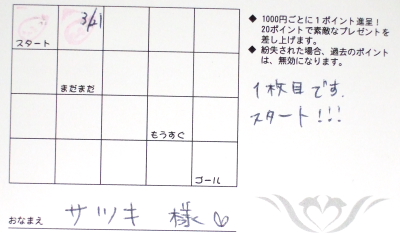 スタート
まだまだ
もうすぐ
ゴール
おなまえ サツキ 様♡
◆ 1000円ごとに1ポイント進呈!
20ポイントで素敵なプレゼントを
差し上げます。
◆ 紛失された場合、過去のポイント
は、無効になります。
1枚目です.
スタート!!!